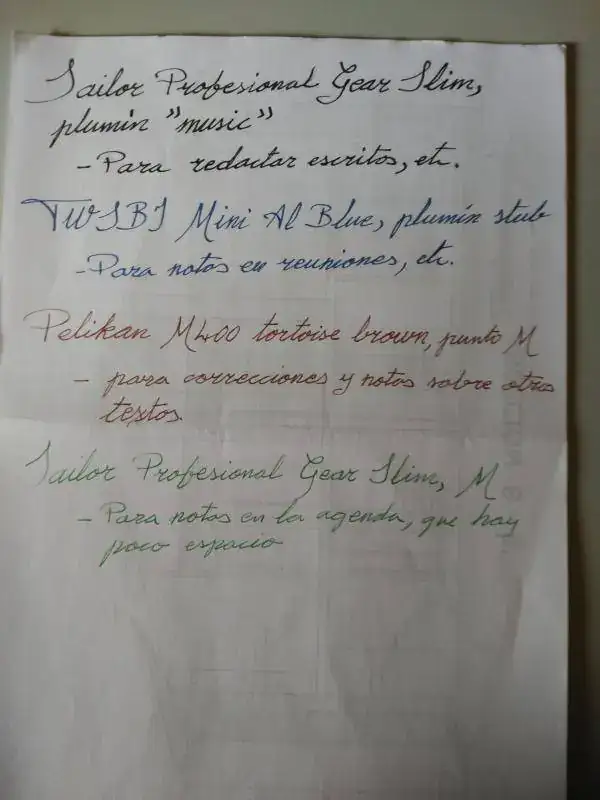 Sailor Profesional Gear Slim,
plumín "music"
- Para redactar escritos, etc.
TWSBI Mini Al Blue, plumín stub
- Para notas en reuniones, etc.
Pelikan M400 tortoise brown, punto M
- para correcciones y notas sobre otros
textos.
Sailor Profesional Gear Slim, M
- Para notas en la agenda, que hay
poco espacio